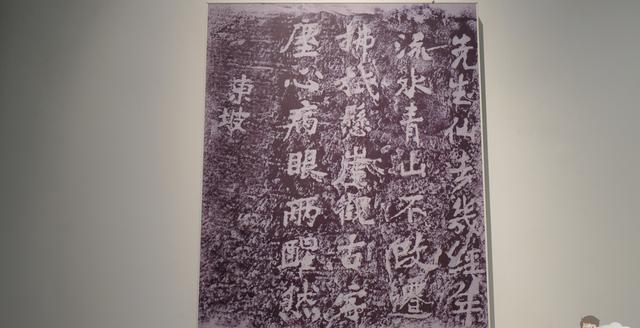 先生仙去幾經年
流水青山不改遷
拂拭懸崖觀古字
塵心病眼兩醒然
東坡